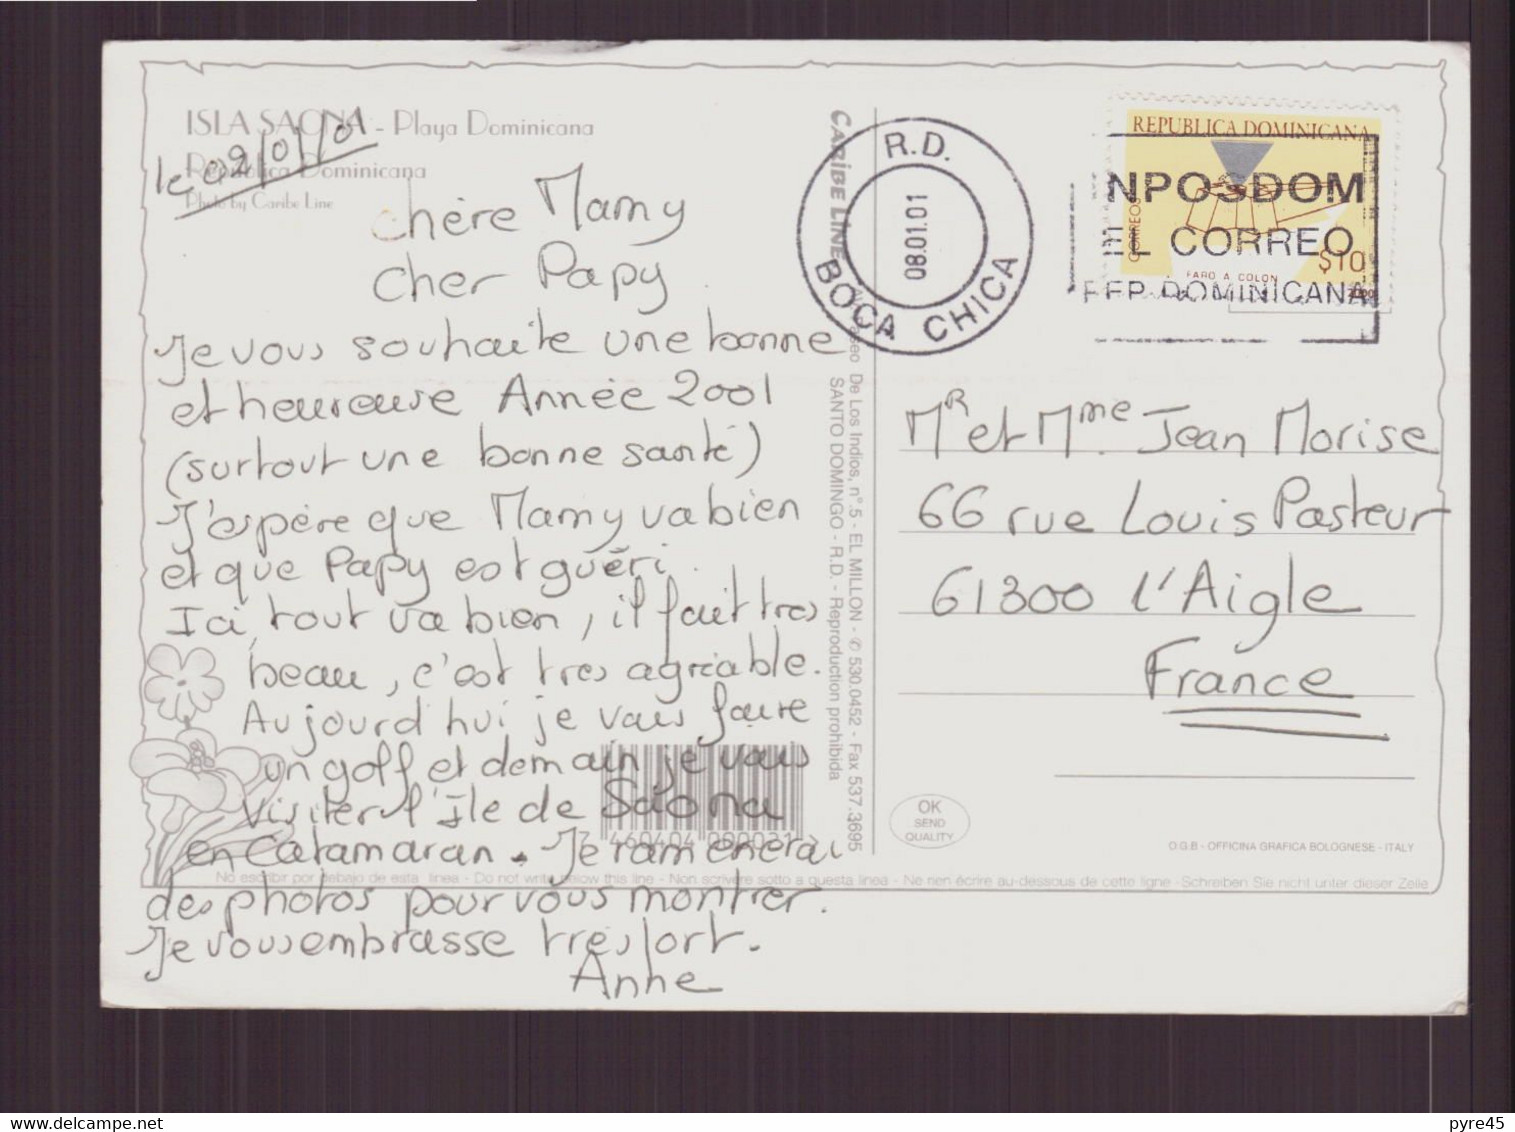 ISLA SAONA - Playa Dominicana
República Dominicana
Photo by Caribe Line
le 02/01/01
Chère Mamy
Cher Papy
Je vous souhaite une bonne
et heureuse Année 2001
(surtout une bonne santé)
J'espère que Mamy va bien
et que Papy est guéri.
Ici, tout va bien, il fait tres
beau, c'est tres agréable.
Aujourd'hui je vais faire
un golf et demain je vais
visiter l'Ile de Saona
en Catamaran. Je ramènerai
des photos pour vous montrer.
Je vous embrasse très fort.
Anne
7 460404 000031
CARIBE LINE
De Los Indios, n° 5 - EL MILLON - ✆ 530.0452 - Fax 537.3695
SANTO DOMINGO - R.D. - Reproduction prohibida
R.D.
08.01.01
BOCA CHICA
REPUBLICA DOMINICANA
CORREOS
FARO A COLON
$10
2000
NPOSDOM
EL CORREO
REP. DOMINICANA
Mr et Mme Jean Morise
66 rue Louis Pasteur
61300 l'Aigle
France
OK
SEND
QUALITY
O.G.B - OFFICINA GRAFICA BOLOGNESE - ITALY
No escribir por debajo de esta linea - Do not write below this line - Non scrivere sotto a questa linea - Ne rien écrire au-dessous de cette ligne - Schreiben Sie nicht unter dieser Zeile
pyre45